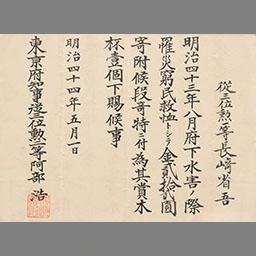 従三位勲一等長崎省吾
明治四十三年八月府下水害ノ際
罹災窮民救恤トシテ金貳拾貳圓
寄附候段奇特ニ付為其賞木
杯壹個下賜候事
明治四十四年五月一日
東京府知事従三位勲一等阿部浩